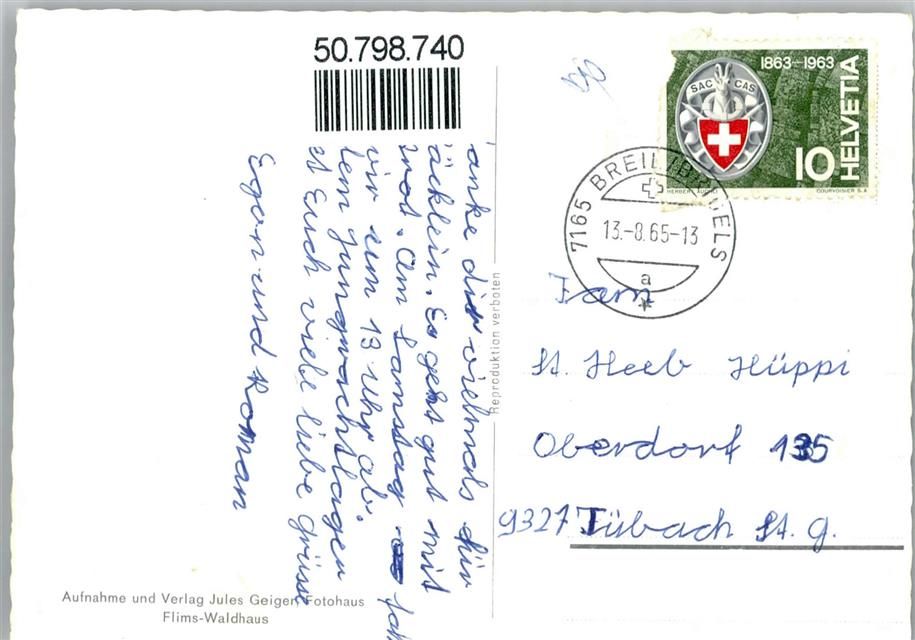 50.798.740
1863–1963
HELVETIA
SAC CAS
10
COURVOISIER S.A.
7165 BREIL/BRIGELS
13.-8.65-13
a
anke dir vielmals für
äcklein. Es geht gut mit
Am Samstag
wir um 13 Uhr ab.
dem Jungwachtlager
st Euch viele liebe grüsse
Egon und Roman
Reproduktion verboten
Fam
St. Heeb Hüppi
Oberdorf 135
9327 Tübach St. g.
Aufnahme und Verlag Jules Geiger, Fotohaus
Flims-Waldhaus